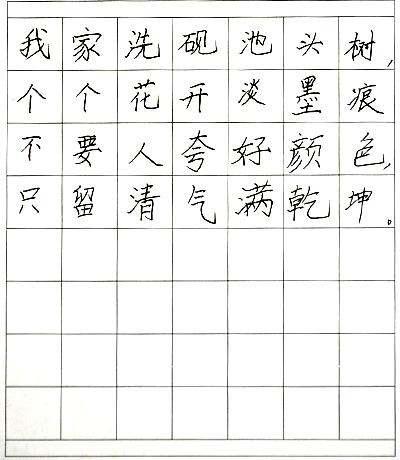 我家洗砚池头树,
个个花开淡墨痕
不要人夸好颜色,
只留清气满乾坤。